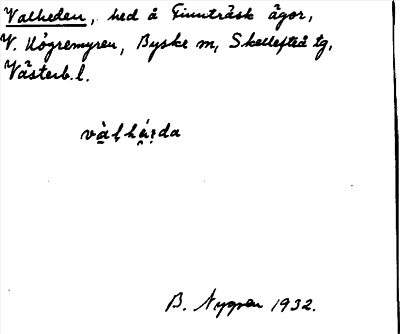 Valheden, hed å Finnträsk ägor,
V. Högremyren, Byske sn, Skellefteå tg,
Västerb.l.
B. Nygren 1932.